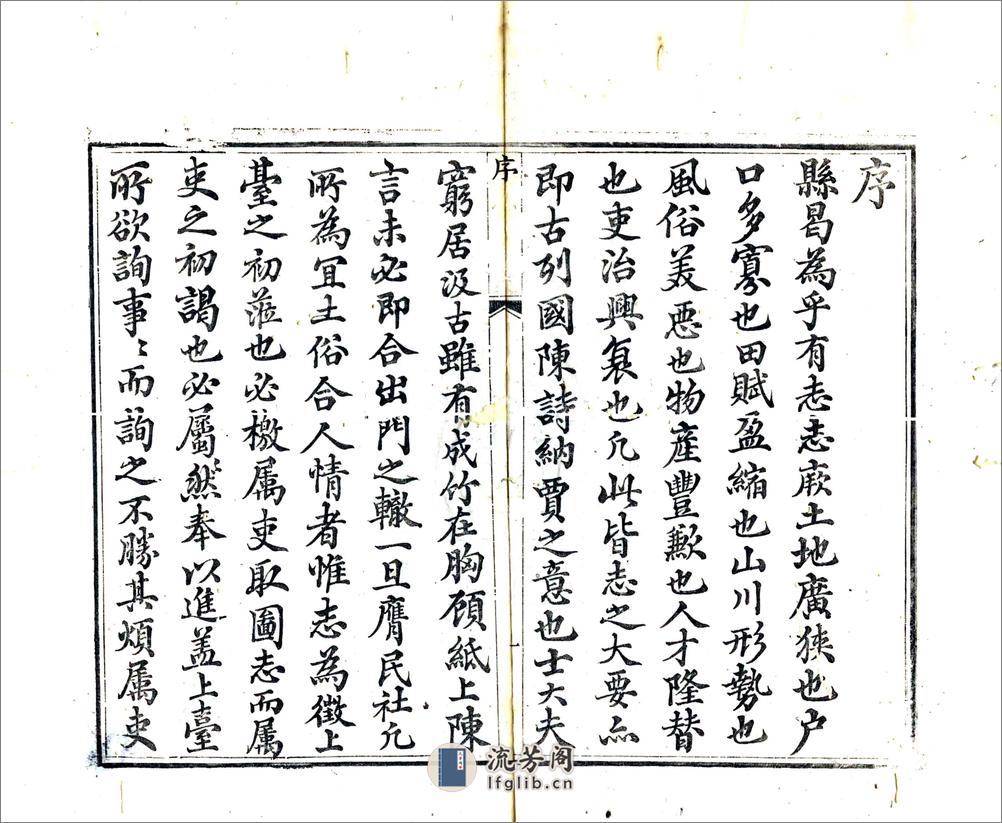 序
縣曷為乎有志志厥土地廣狹也户
口多寡也田賦盈縮也山川形勢也
風俗美惡也物産豐歉也人才隆替
也吏治興衰也凢此皆志之大要亦
即古列國陳詩納賈之意也士大夫
序
窮居汲古雖有成竹在胸顧紙上陳
言未必即合出門之轍一旦膺民社凢
所為宜土俗合人情者惟志為徵上
臺之初蒞也必檄属吏取圖志而属
吏之初謁也必屬然奉以進盖上臺
所欲詢事〻而詢之不勝其煩属吏
流芳阁
lfglib.cn